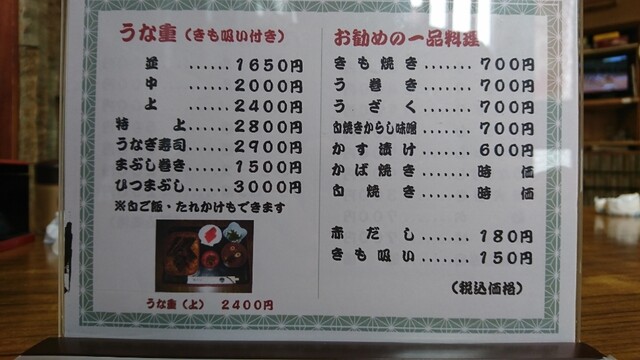 うな重（きも吸い付き）
並......1650円
中......2000円
上......2400円
特上......2800円
うなぎ寿司......2900円
まぶし巻き......1500円
ひつまぶし......3000円
※白ご飯・たれかけもできます
うな重（上） 2400円
お勧めの一品料理
きも焼き.......700円
う巻き.......700円
うざく.......700円
白焼きからし味噌.......700円
かす漬け.......600円
かば焼き.......時価
白焼き.......時価
赤だし.......180円
きも吸い.......150円
（税込価格）